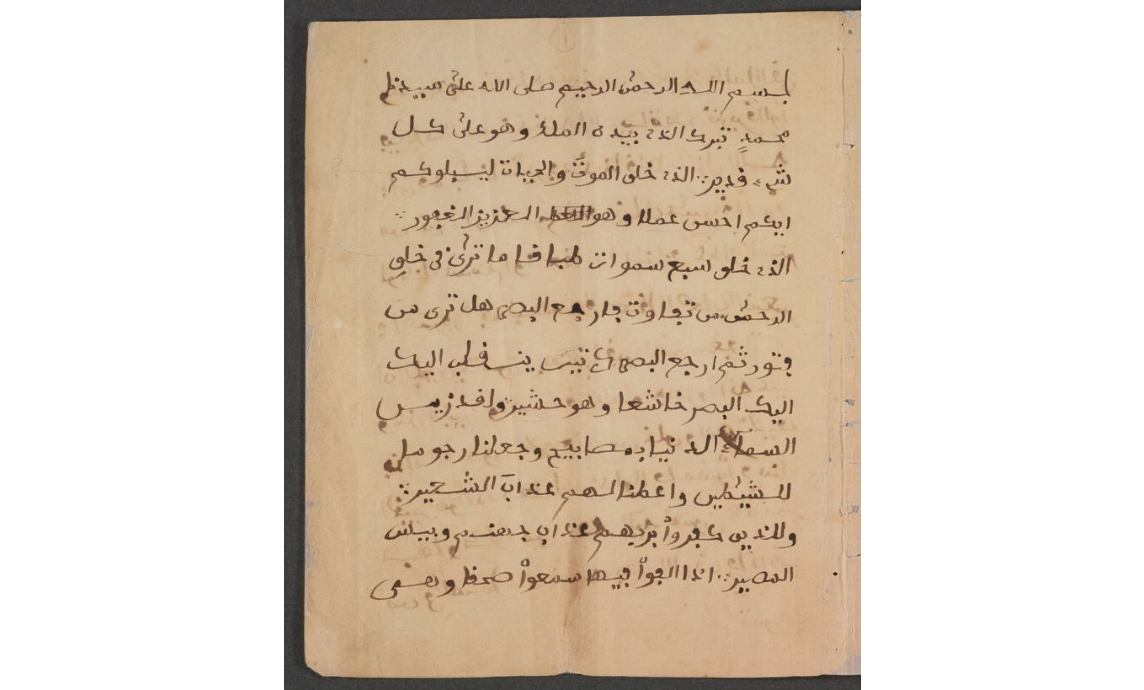 بسم الله الرحمن الرحيم صلى الله على سيدنا
محمد تبرك الذے بيده الملك وهو على كل
شےء فدير الذے خلق الموت والحيات ليبلوكم
ايكم احسن عملا وهو العزيز الغفور
الذے خلق سبع سموات طبافا ما ترى في خلق
الرحمن من تفاوت فارجع البصر هل ترى من
فتور ثم ارجع البصر ينفلب اليك
اليك البصر خاشعا وهو حشير ولفد زين
السماء الدنيا بمصابيح وجعلنا رجوما
للشيطين لهم عذاب الشعير
وللذين كفروا بربهم عذاب جهنم وبيس
المصير اذا الفوا فيها سمعوا